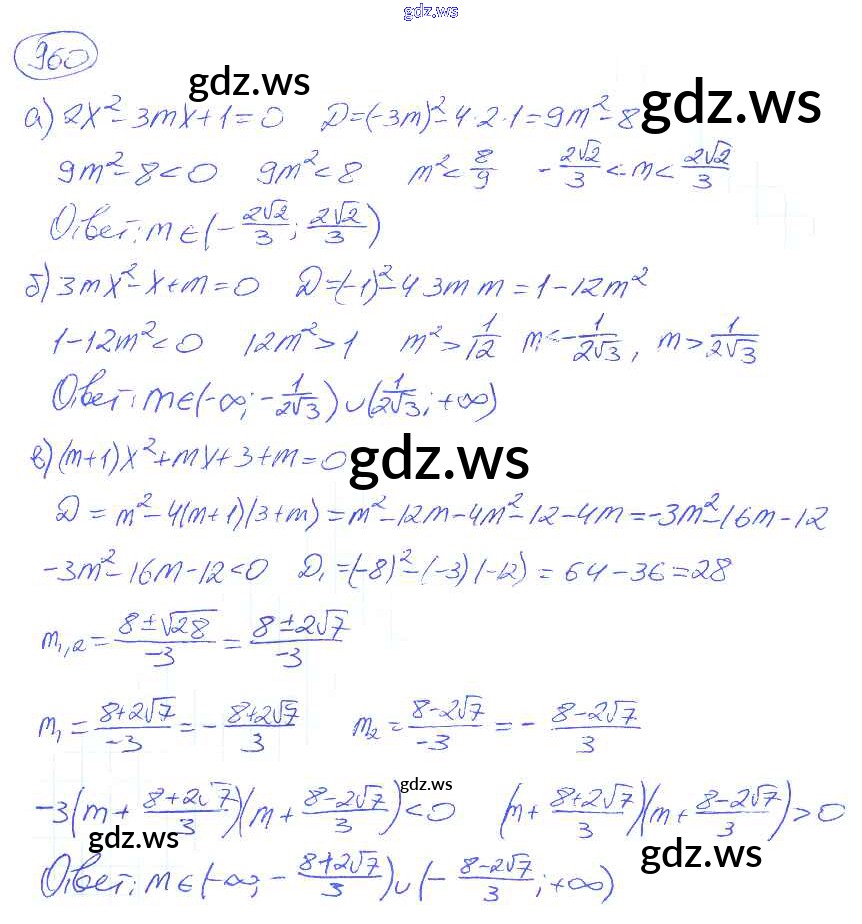 gdz.ws
960
gdz.ws
gdz.ws
а) 2x² - 3mx + 1 = 0   D = (-3m)² - 4·2·1 = 9m² - 8
9m² - 8 < 0   9m² < 8   m² < 8/9   -2√2/3 < m < 2√2/3
Ответ: m ∈ (-2√2/3; 2√2/3)
б) 3mx² - x + m = 0   D = (-1)² - 4 3m m = 1 - 12m²
1 - 12m² < 0   12m² > 1   m² > 1/12   m < -1/2√3, m > 1/2√3
Ответ: m ∈ (-∞; -1/2√3) ∪ (1/2√3; +∞)
в) (m+1)x² + mx + 3 + m = 0
gdz.ws
D = m² - 4(m+1)(3+m) = m² - 12m - 4m² - 12 - 4m = -3m² - 16m - 12
-3m² - 16m - 12 < 0   D₁ = (-8)² - (-3)(-12) = 64 - 36 = 28
m₁,₂ = (8 ± √28)/-3 = (8 ± 2√7)/-3
m₁ = (8+2√7)/-3 = -(8+2√7)/3   m₂ = (8-2√7)/-3 = -(8-2√7)/3
gdz.ws
-3(m + (8+2√7)/3)(m + (8-2√7)/3) < 0   (m + (8+2√7)/3)(m + (8-2√7)/3) > 0
gdz.ws
gdz.ws
Ответ: m ∈ (-∞; -(8+2√7)/3) ∪ (-(8-2√7)/3; +∞)